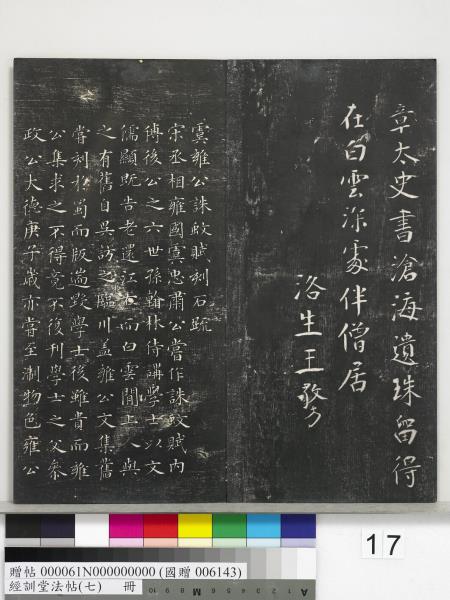 章太史書滄海遺珠留得
在白雲深處伴僧居
洛生王
虞雍公誅蚊賦刻石跋
宋丞相雍國虞忠肅公嘗作誅蚊賦內
傅後公之六世孫翰林侍講學士以文
儒顯既告老還江右而白雲閒上人與
之有舊自吳訪之臨川蓋雍公文集舊
嘗刻於蜀而版燬學士後雖貴而雍
公集求之不得竟不後刊學士之父參
政公大德庚子歲亦嘗至浙物色雍公
17
贈帖 000061N000000000 (國贈 006143)
經訓堂法帖(七) 冊